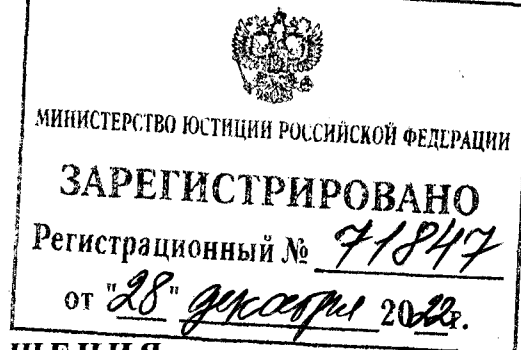 МИНИСТЕРСТВО ЮСТИЦИИ РОССИЙСКОЙ ФЕДЕРАЦИИ
ЗАРЕГИСТРИРОВАНО
Регистрационный № 71847
от "28" декабря 2022г.